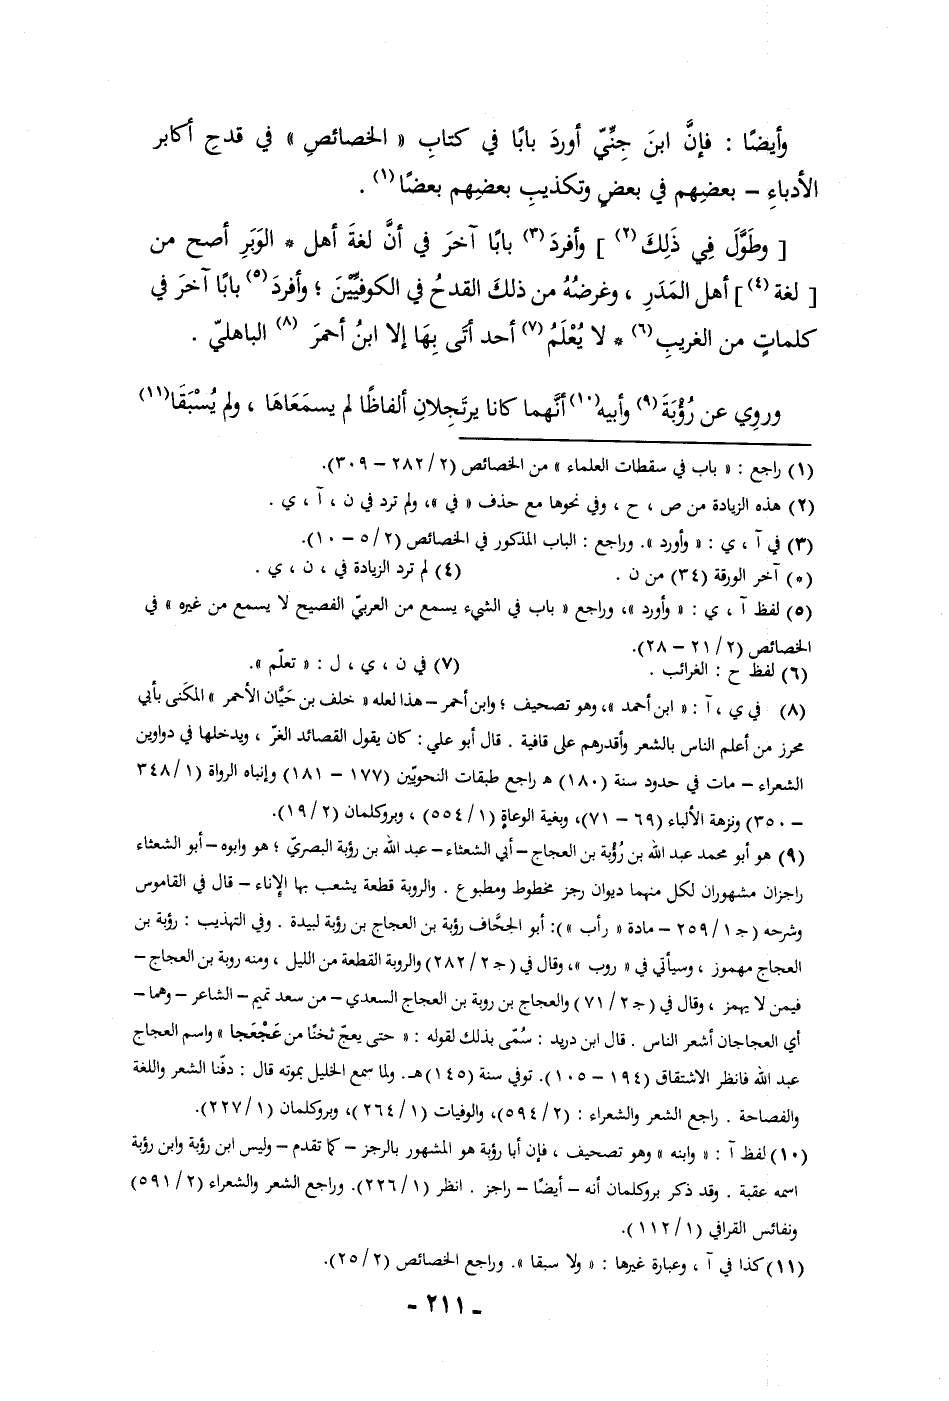 وأيضًا : فإنَّ ابنَ جِنِّيّ أوردَ بابًا في كتابِ « الخصائصِ » في قدحِ أكابر
الأدباءِ – بعضِهم في بعضٍ وتكذيبِ بعضِهم بعضًا(١) .
[ وطَوَّلَ فِي ذَلِكَ (٢) ] وأفردَ (٣) بابًا آخرَ في أنَّ لغةَ أهل * الوَبَرِ أصح من
[ لغة (٤) ] أهل المَدَرِ ، وغرضُهُ من ذلكَ القدحُ في الكوفيِّيْنَ ؛ وأفردَ (٥) بابًا آخرَ في
كلماتٍ من الغريبِ (٦) * لا يُعْلَمُ (٧) أحد أتَى بِهَا إلا ابنُ أحمرَ (٨) الباهليّ .
ورِوي عن رُؤْبَةَ (٩) وأبيه (١٠) أنَّهما كانا يرتَجِلانِ ألفاظًا لم يسمَعَاهَا ، ولم يُسْبَقَا (١١)
(١) راجع : « باب في سقطات العلماء » من الخصائص (٢٨٢/٢ – ٣٠٩).
(٢) هذه الزيادة من ص ، ح ، وفي نحوها مع حذف « في »، ولم ترد في ن ، آ ، ي .
(٣) في آ ، ي : « وأورد ». وراجع : الباب المذكور في الخصائص (٥/٢ – ١٠).
(*) آخر الورقة (٣٤) من ن . (٤) لم ترد الزيادة في ، ن ، ي .
(٥) لفظ آ ، ي : « وأورد »، وراجع « باب في الشيء يسمع من العربيّ الفصيح لا يسمع من غيره » في
الخصائص (٢١/٢ – ٢٨).
(٦) لفظ ح : الغرائب . (٧) في ن ، ي ، ل : « تعلّم ».
(٨) في ي ، آ : « ابن أحمد »، وهو تصحيف ؛ وابن أحمر – هذا لعله « خلف بن حَيَّان الأحمر » المكَنى بأبي
محرز من أعلم الناس بالشعر وأقدرهم على قافية . قال أبو علي : كان يقول القصائد الغرّ ، ويدخلها في دواوين
الشعراء – مات في حدود سنة (١٨٠) ه راجع طبقات النحويّين (١٧٧ – ١٨١) وإنباه الرواة (٣٤٨/١
– ٣٥٠) ونزهة الألباء (٦٩ – ٧١)، وبغية الوعاة (٥٥٤/١) ، وبروكلمان (١٩/٢).
(٩) هو أبو محمد عبد الله بن رُؤْبة بن العجاج – أبي الشعثاء – عبد الله بن رؤبة البصريّ ؛ هو وابوه – أبو الشعثاء
راجزان مشهوران لكل منهما ديوان رجز مخطوط ومطبوع . والروبة قطعة يشعب بها الإناء – قال في القاموس
وشرحه (جـ٢٥٩/١ – مادة « رأب »): أبو الجحَّاف رؤبة بن العجاج بن رؤبة لبيدة . وفي التهذيب : رؤبة بن
العجاج مهموز ، وسيأتي في « روب »، وقال في (جـ٢٨٢/٢) والروبة القطعة من الليل ، ومنه روبة بن العجاج –
فيمن لا يهمز ، وقال في (جـ٧١/٢) والعجاج بن روبة بن العجاج السعدي – من سعد تميم – الشاعر – وهما –
أي العجاجان أشعر الناس . قال ابن دريد : سُمّى بذلك لقوله : « حتى يعجّ ثخنًا من عَجْعَجا » واسم العجاج
عبد الله فانظر الاشتقاق (١٩٤ – ١٠٥). توفي سنة (١٤٥)هـ. ولما سمع الخليل بموته قال : دفنّا الشعر واللغة
والفصاحة . راجع الشعر والشعراء : (٥٩٤/٢)، والوفيات (٢٦٤/١)، وبروكلمان (٢٢٧/١).
(١٠) لفظ آ : « وابنه » وهو تصحيف ، فإن أبا رؤبة هو المشهور بالرجز – كما تقدم – وليس ابن رؤبة وابن رؤبة
اسمه عقبة . وقد ذكر بروكلمان أنه – أيضًا – راجز . انظر (٢٢٦/١). وراجع الشعر والشعراء (٥٩١/٢)
ونفائس القرافي (١١٢/١).
(١١) كذا في آ ، وعبارة غيرها : « ولا سبقا ». وراجع الخصائص (٢٥/٢).
- ٢١١ -